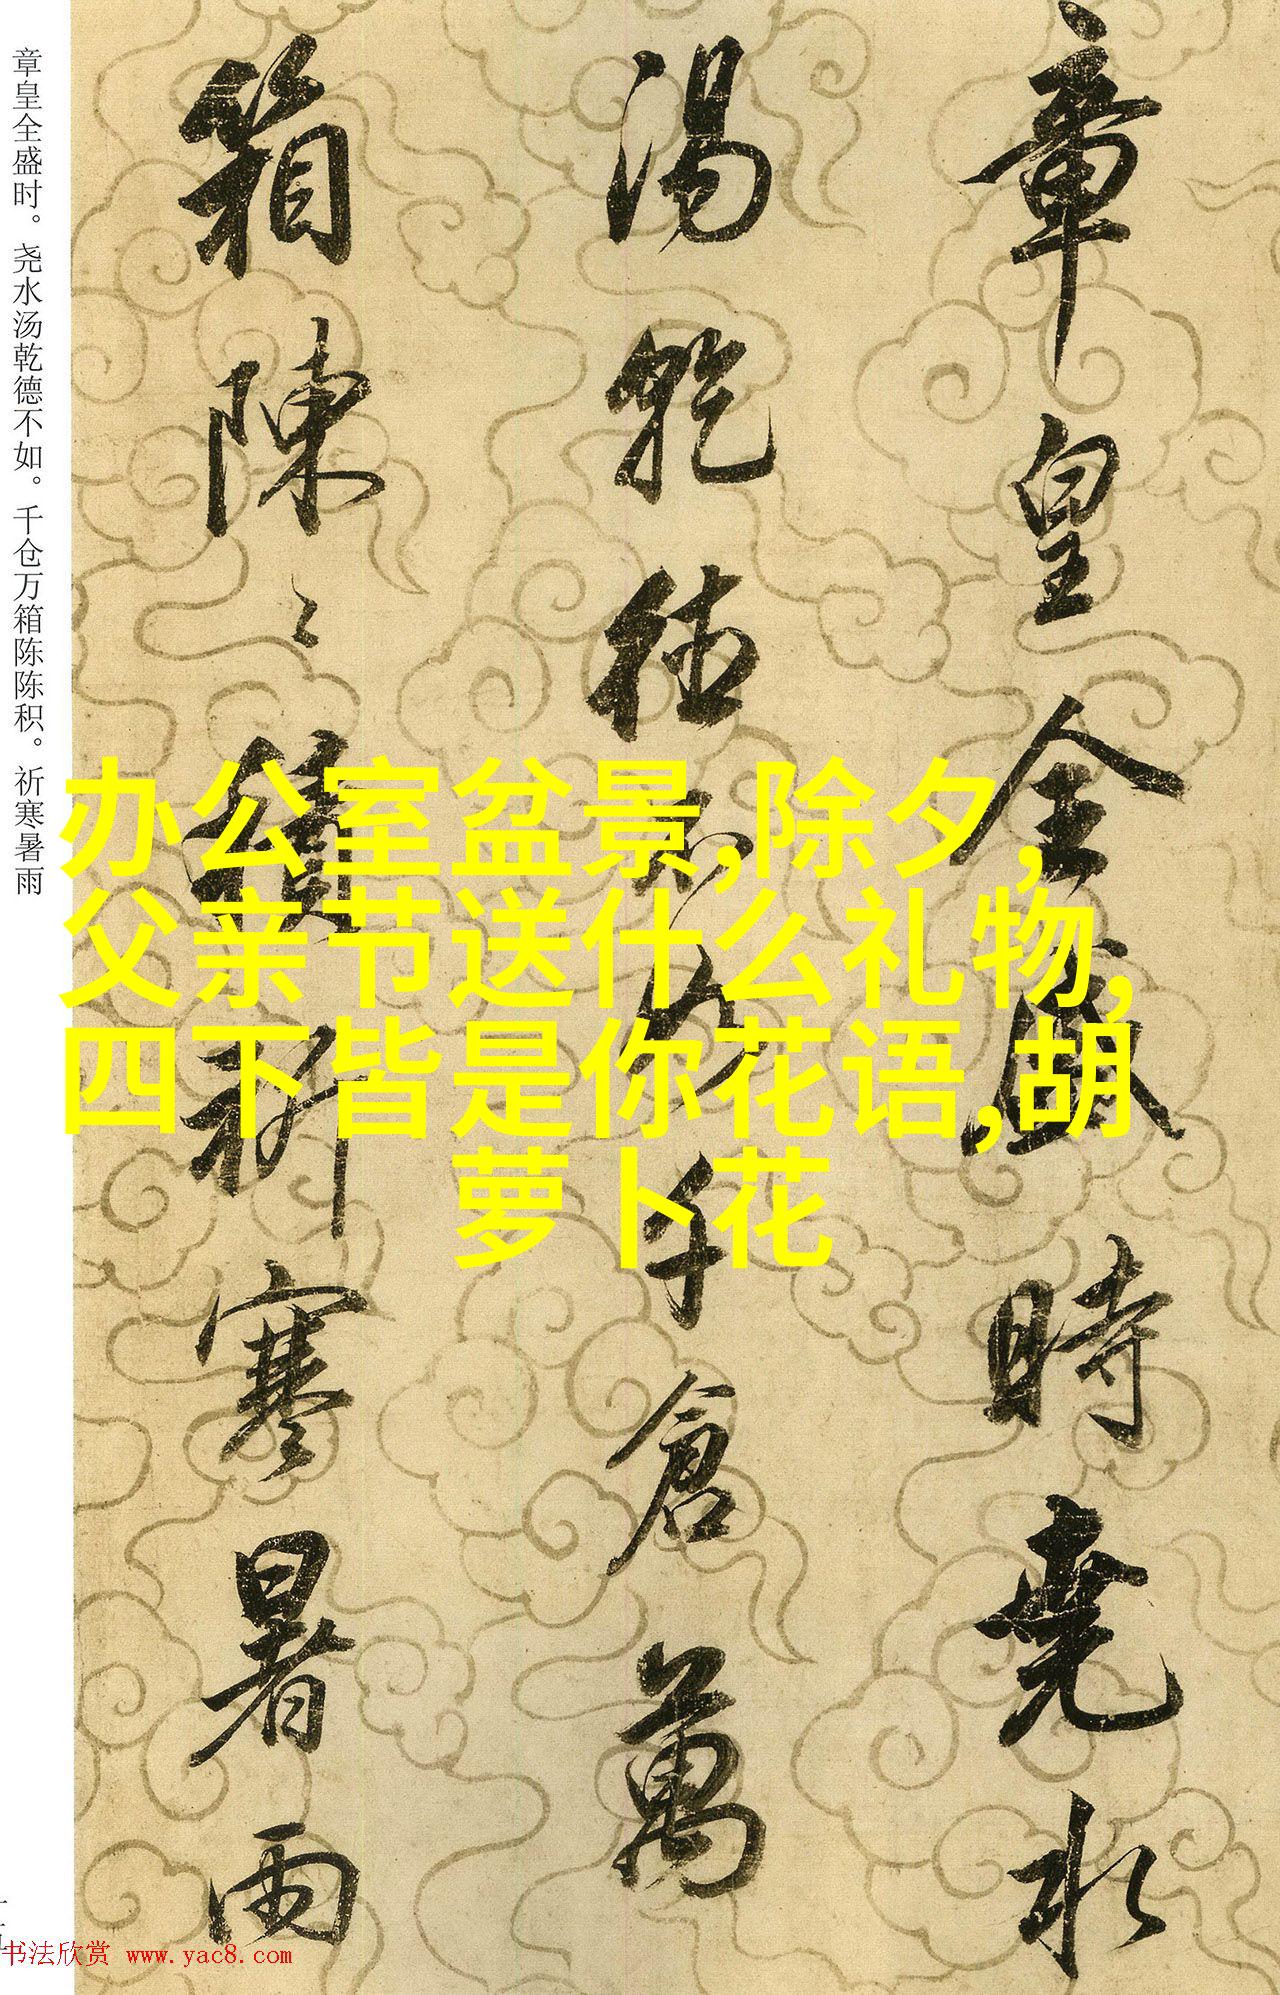 章皇全盛時堯水
湯乾德不如千倉萬
箱陳〻積祈寒暑雨
章皇全盛时。尧水汤乾德不如。千仓万箱陈陈积。祈寒暑雨
办公室盆景,除夕,
父亲节送什么礼物,
四下皆是你花语,胡
萝卜花
书法欣赏 www.yac8.com